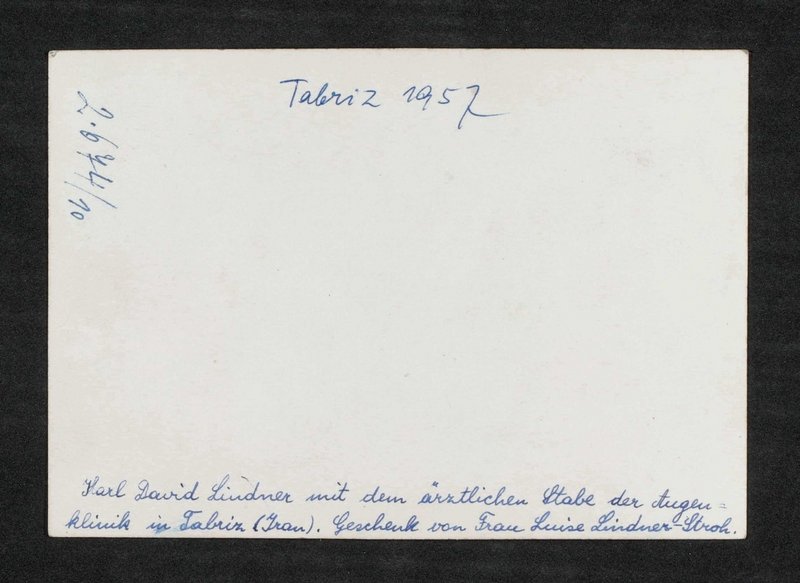 Tabriz 1957
2.674/10
Karl David Lindner mit dem ärztlichen Stabe der Augen=
klinik in Tabriz (Iran). Geschenk von Frau Luise Lindner-Stroh.